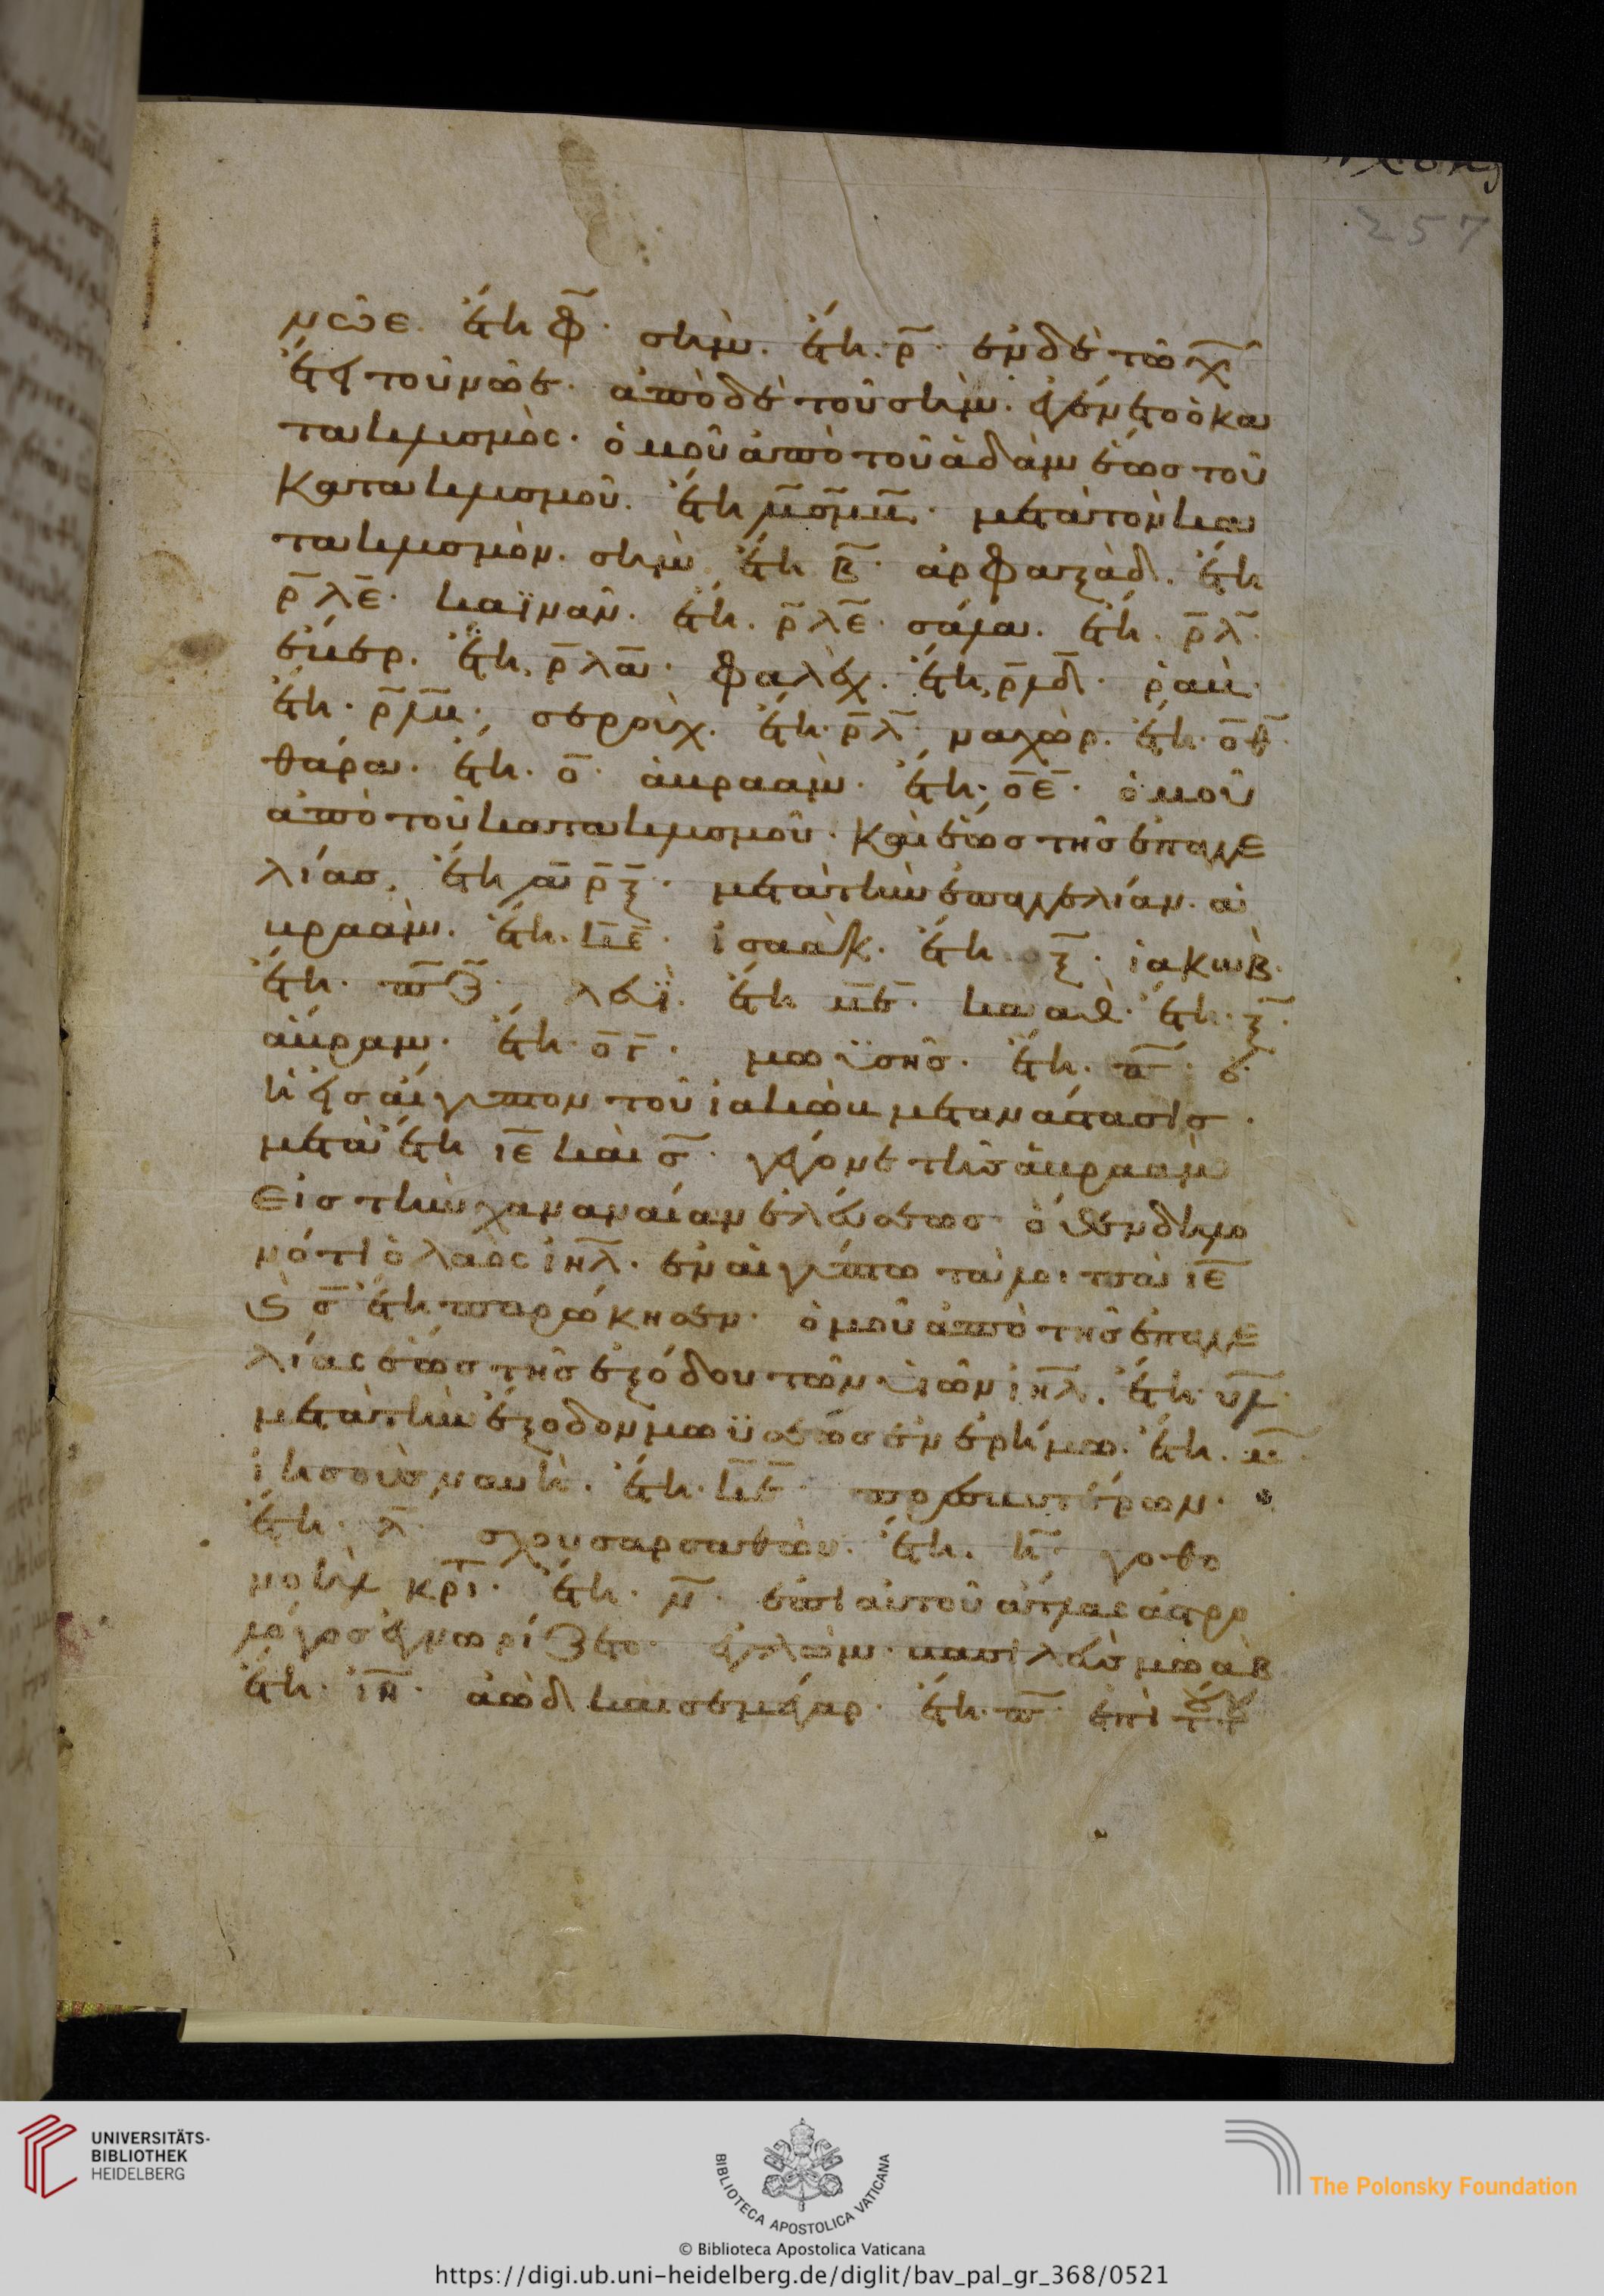 257
νῶε. ἔτη φ̅· σὴμ. ἔτη. ρ̅· ἐν δὲ τῶ χ̅
ἔτει τοῦ νῶε· ἀπὸ δὲ τοῦ σὴμ. ἐγένετο ὁ κα
τακλυσμὸς· ὁμοῦ ἀπὸ τοῦ ἀδὰμ ἕως τοῦ
κατακλυσμοῦ. ἔτη μετὰ τὸν κα
τακλυσμὸν. σὴμ ἔτη β̅· ἀρφαξὰδ. ἔτη
ρ̅λ̅ε̅· καϊνᾶν. ἔτη. ρ̅λ̅ε̅· σάλα. ἔτη. ρ̅λ̅·
ἔβερ. ἔτη ρ̅λ̅α̅· φαλὲχ. ἔτη ρ̅λ̅δ̅· ῥαὺ·
ἔτη· ρ̅λ̅β̅· σεροὺχ. ἔτη· ρ̅λ̅· ναχὼρ. ἔτη· ο̅θ̅·
θάρα· ἔτη. ο̅· ἀβραὰμ· ἔτη· ο̅ε̅· ὁμοῦ
ἀπὸ τοῦ κατακλυσμοῦ· καὶ ἕως τῆς ἐπαγγε
λίας. ἔτη α̅ρ̅ξ̅· μετὰ τὴν ἐπαγγελίαν. ἀ
βραὰμ. ἔτη. κ̅ε̅· ἰσαὰκ. ἔτη ξ̅· ἰακὼβ·
ἔτη· π̅ζ̅· λευῒ. ἔτη μ̅ε̅· καὰθ· ἔτη· ξ̅·
ἄβραμ· ἔτη· ο̅γ̅· μωϋσῆς· ἔτη· π̅·
ἡ εἰς αἴγυπτον τοῦ ἰακὼβ μετανάστασις·
μετὰ ἔτη ι̅ε̅ καὶ σ̅· γέγονε τῆς ἀβραὰμ
εἰς τὴν χαναναίαν ἐλεύσεως· ὅθεν δῆλο
ν ὅτι ὁ λαὸς ι̅η̅λ̅· ἐν αἰγύπτω τὰ λοιπὰ ι̅ε̅
ϗ σ̅ ἔτη παρώκησεν· ὁμοῦ ἀπὸ τῆς ἐπαγγε
λίας ἕως τῆς ἐξόδου τῶν υἱῶν ι̅η̅λ̅. ἔτη υ̅λ̅·
μετὰ τὴν ἔξοδον μωϋσέως ἐν ἐρήμω. ἔτη. μ̅·
ἰησοῦς ναυῆ. ἔτη· κ̅ε̅· πρεσβυτέρων·
ἔτη· λ̅· χουσαρσαθὼν. ἔτη. η̅· γοθο
νοὴλ κρι̅τ̅· ἔτη· ν̅· ἐπὶ αὐτοῦ ἄτλας ἀστρο
λόγος ἐγνωρίζετο· ἐγλὼμ· βασιλεὺς μωὰβ
ἔτη· ι̅η̅· ἀὼδ καὶ σεμέγαρ· ἔτη· π̅· ἐπὶ
UNIVERSITÄTS-
BIBLIOTHEK
HEIDELBERG
BIBLIOTECA APOSTOLICA VATICANA
The Polonsky Foundation
© Biblioteca Apostolica Vaticana
https://digi.ub.uni-heidelberg.de/diglit/bav_pal_gr_368/0521